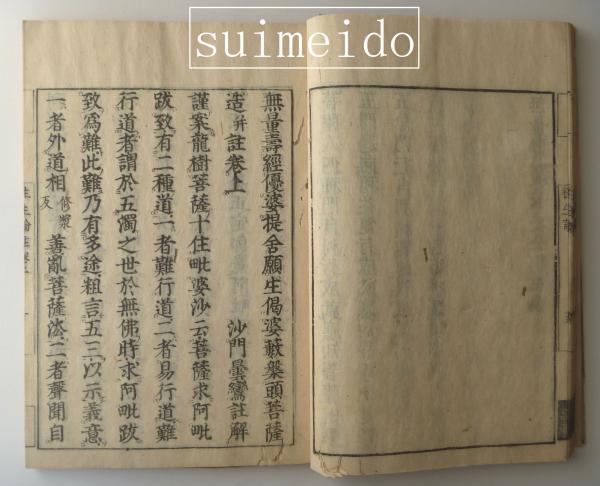 suimeido
無量壽經優婆提舍願生偈婆藪槃頭菩薩
造并註卷上 沙門曇鸞註解
謹案龍樹菩薩十住毗婆沙云菩薩求阿毗
跋致有二種道一者難行道二者易行道難
行道者謂於五濁之世於無佛時求阿毗跋
致爲難此難乃有多途粗言五三以示義意
一者外道相修漿反善亂菩薩法二者聲聞自